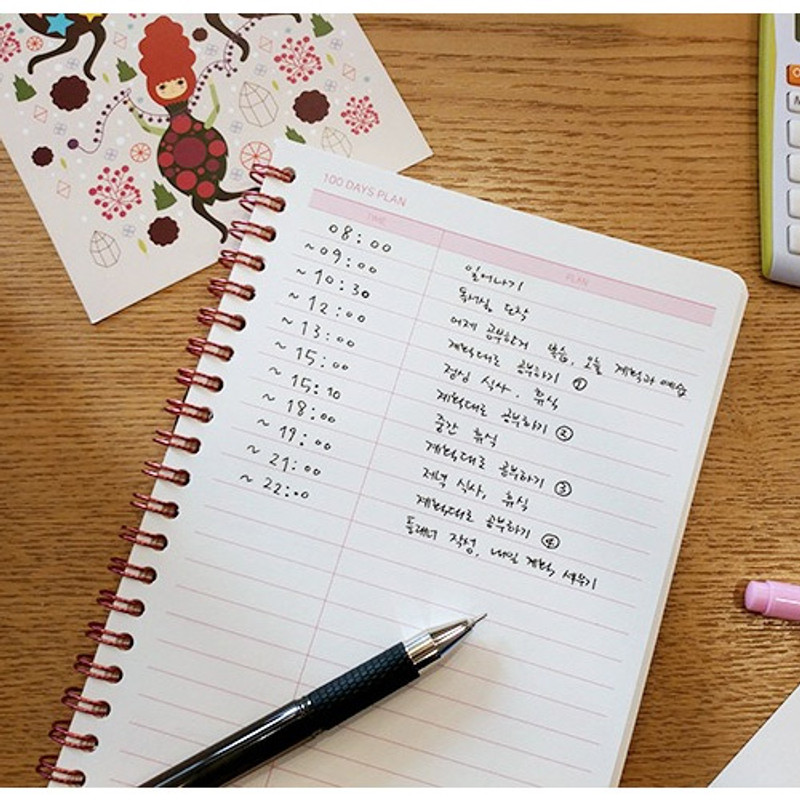 100 DAYS PLAN
TIME PLAN
08:00 일어나기
~09:00 독서실 도착
~10:30 어제 공부한거 복습, 오늘 계획과 예습
~12:00 계획대로 공부하기 ①
~13:00 점심 식사, 휴식
~15:00 계획대로 공부하기 ②
~15:10 중간 휴식
~18:00 계획대로 공부하기 ③
~19:00 저녁 식사, 휴식
~21:00 계획대로 공부하기 ④
~22:00 플래너 작성, 내일 계획 세우기